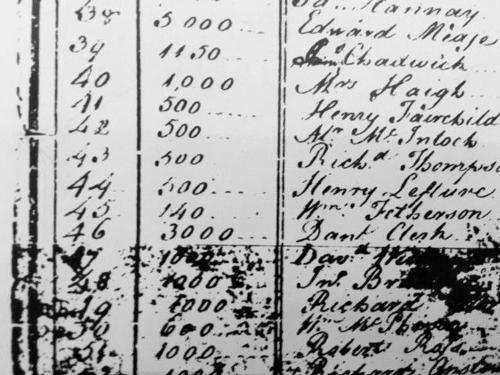 Hannay
38 5000 Edward Mease
39 1150 Chadwick
40 1,000 Mrs Haigh
41 500 Henry Fairchild
42 500 Mr Mc Intoch
43 500 Richd Thompso
44 500 Henry Lefevre
45 140 Wm Fetherson
46 3000 Danl Clerk
47 1000 Davd
48 1000 Jno
49 1000 Richard
50 600 Wm Mc Pherson
51 1000 Robert
Richard